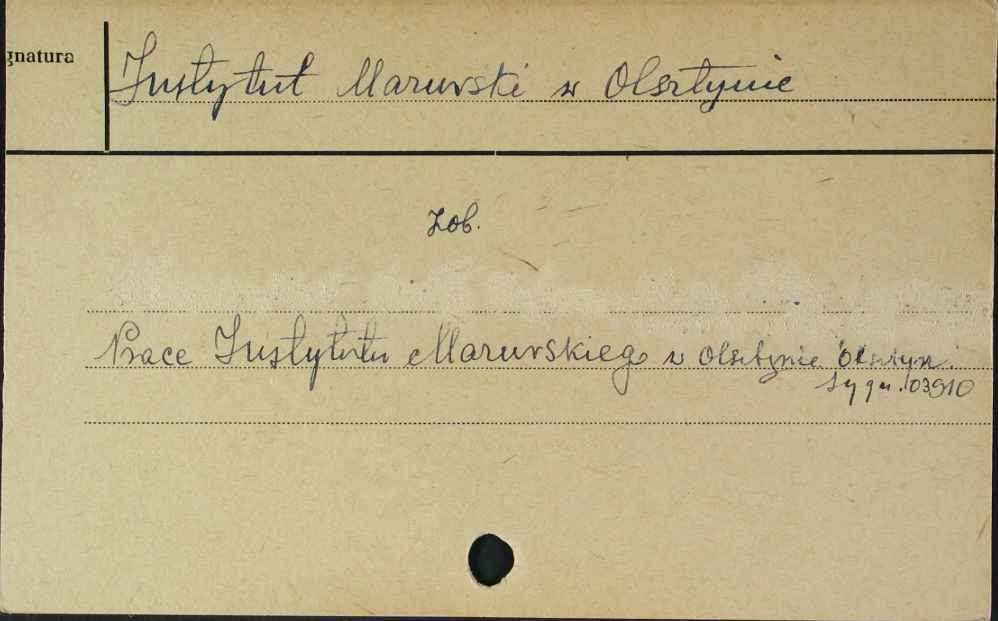 gnatura
Instytut Mazurski w Olsztynie
Zob.
Prace Instytutu Mazurskiego w Olsztynie Olsztyn.
Sygn. 03910